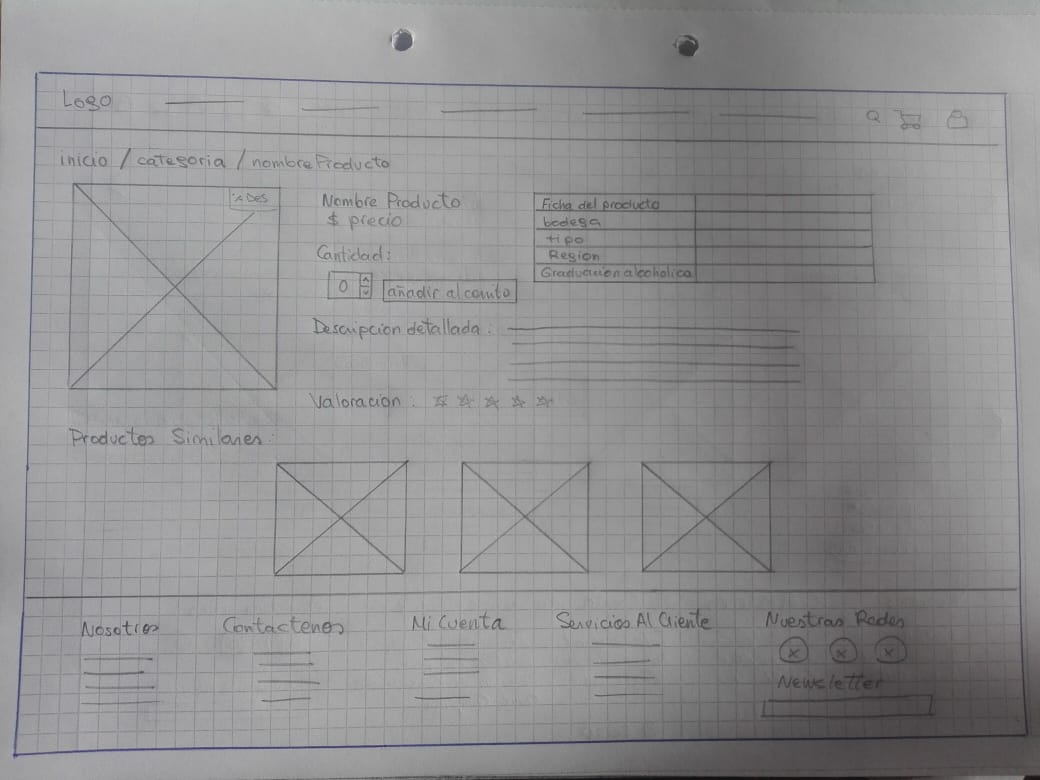 Logo
inicio / categoria / nombre Producto
% Des
Nombre Producto
$ precio
Cantidad:
0
añadir al carrito
Ficha del producto
bodega
tipo
Region
Graduacion alcoholica
Descripcion detallada :
Valoracion :
Productos Similares :
Nosotros
Contactenos
Mi Cuenta
Servicios Al Cliente
Nuestras Redes
x x x
Newsletter